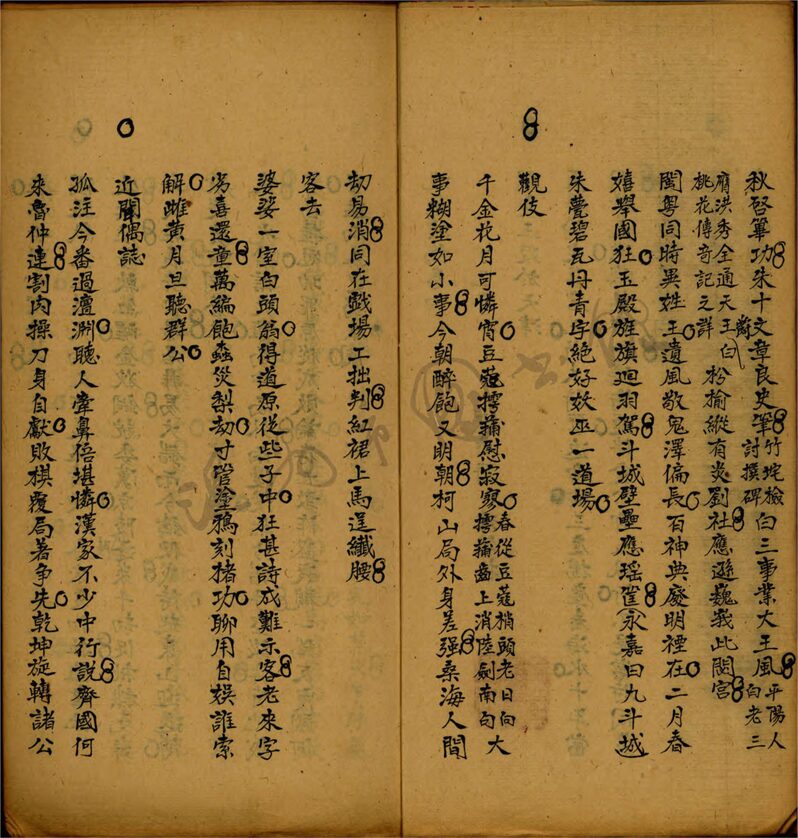 秋啓篳功朱十文章良史筆竹垞檢討撰碑白三事業大王風平陽人白老三
膺洪秀全通天王白桃花傳奇記之群枌榆縱有炎劉社應遜巍峩此閟宮
閩粤同時異姓王遺風敬鬼澤偏長百神典廢明禋在二月春
嬉舉國狂玉殿旌旗迴羽駕斗城壁壘應瑤筐永嘉曰九斗城
朱甍碧瓦丹青字絕好妖巫一道場
觀伎
千金花月可憐宵豆蔻摴蒱慰寂寥春從豆蔻梢頭老日向摴蒱齒上消陸劍南句大
事糊塗如小事今朝醉飽又明朝柯山局外身差強桑海人間
劫易消同在戲場工拙判紅裙上馬逞纖腰
客去
婆娑一室白頭翁得道原從些子中狂甚詩成難示客老來字
劣喜還童萬編飽蟲災梨劫寸管塗鴉刻楮功聊用自娛誰索
解雌黃月旦聽群公
近聞偶誌
孤注今番過澶淵聽人牽鼻倍堪憐漢家不少中行說齊國何
來魯仲連割肉操刀身自獻敗棋覆局著争先乾坤旋轉諸公